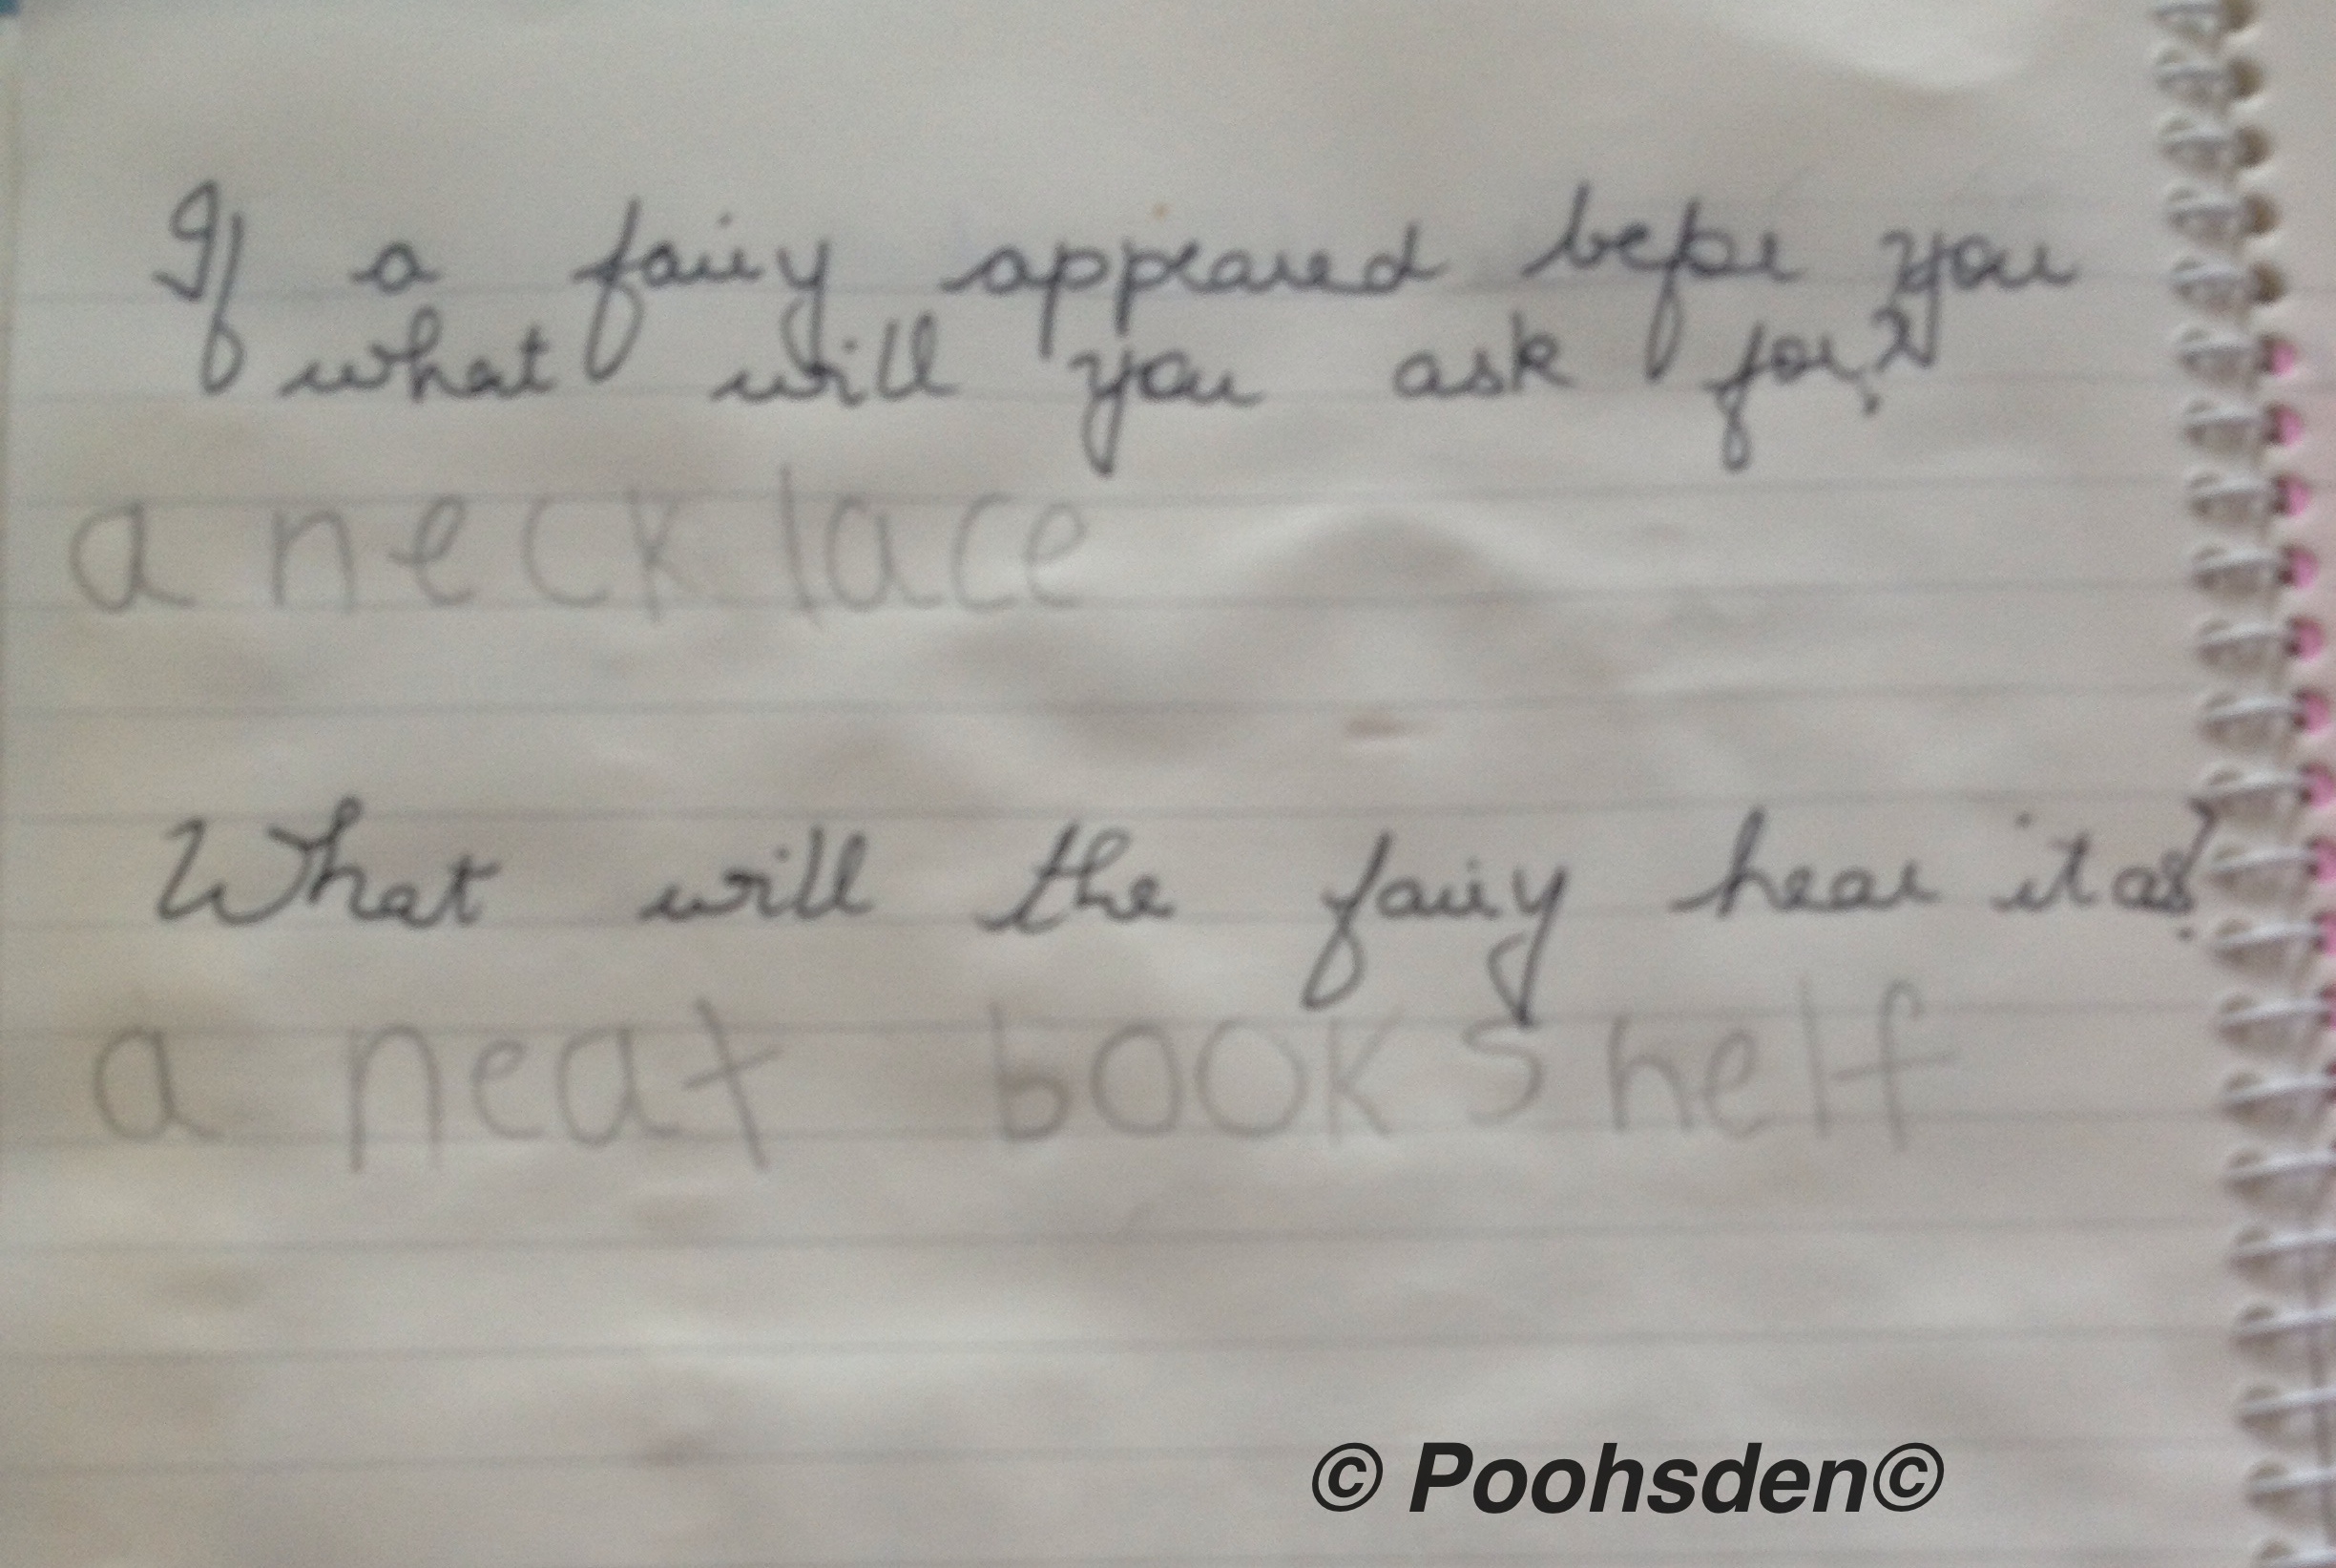 If a fairy appeared before you
what will you ask for?
a necklace
What will the fairy hear it as?
a neat bookshelf
© Poohsden©